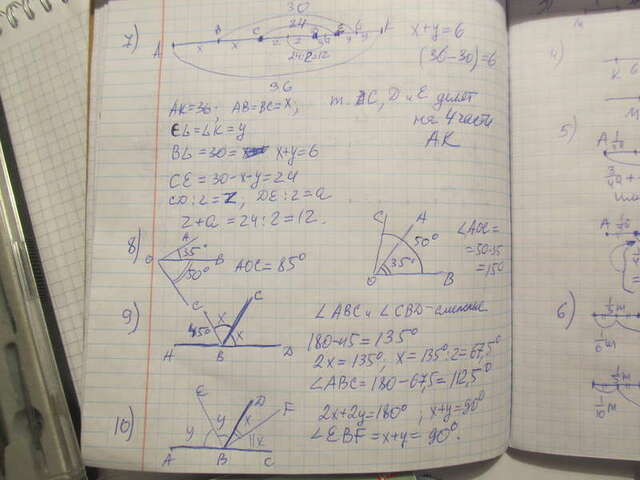 7) 30
24
A x B x C z D E y L y K
24:2=12
36
x+y=6
(36-30)=6
AK=36; AB=BC=x;
т. C, D и E делят
на 4 части
AK
EL=LK=y
BL=30= x+y=6
CE=30-x-y=24
CD:2=z, DE:2=a
z+a=24:2=12.
8) A O B C 35° 50°
AOC=85°
C A O B 50° 35°
∠AOC=
=50-35
=15°
9) A B D C C 45° x x
∠ABC и ∠CBD-смежные
180-45=135°
2x=135°, x=135°:2=67,5°
∠ABC=180-67,5=112,5°
10) A B C E D F y y x x
2x+2y=180°; x+y=90°
∠EBF=x+y=90°.
4)
K 6
M
5)
A 1/50
3/4a+
6)
1/5m
1/6m
1/10m